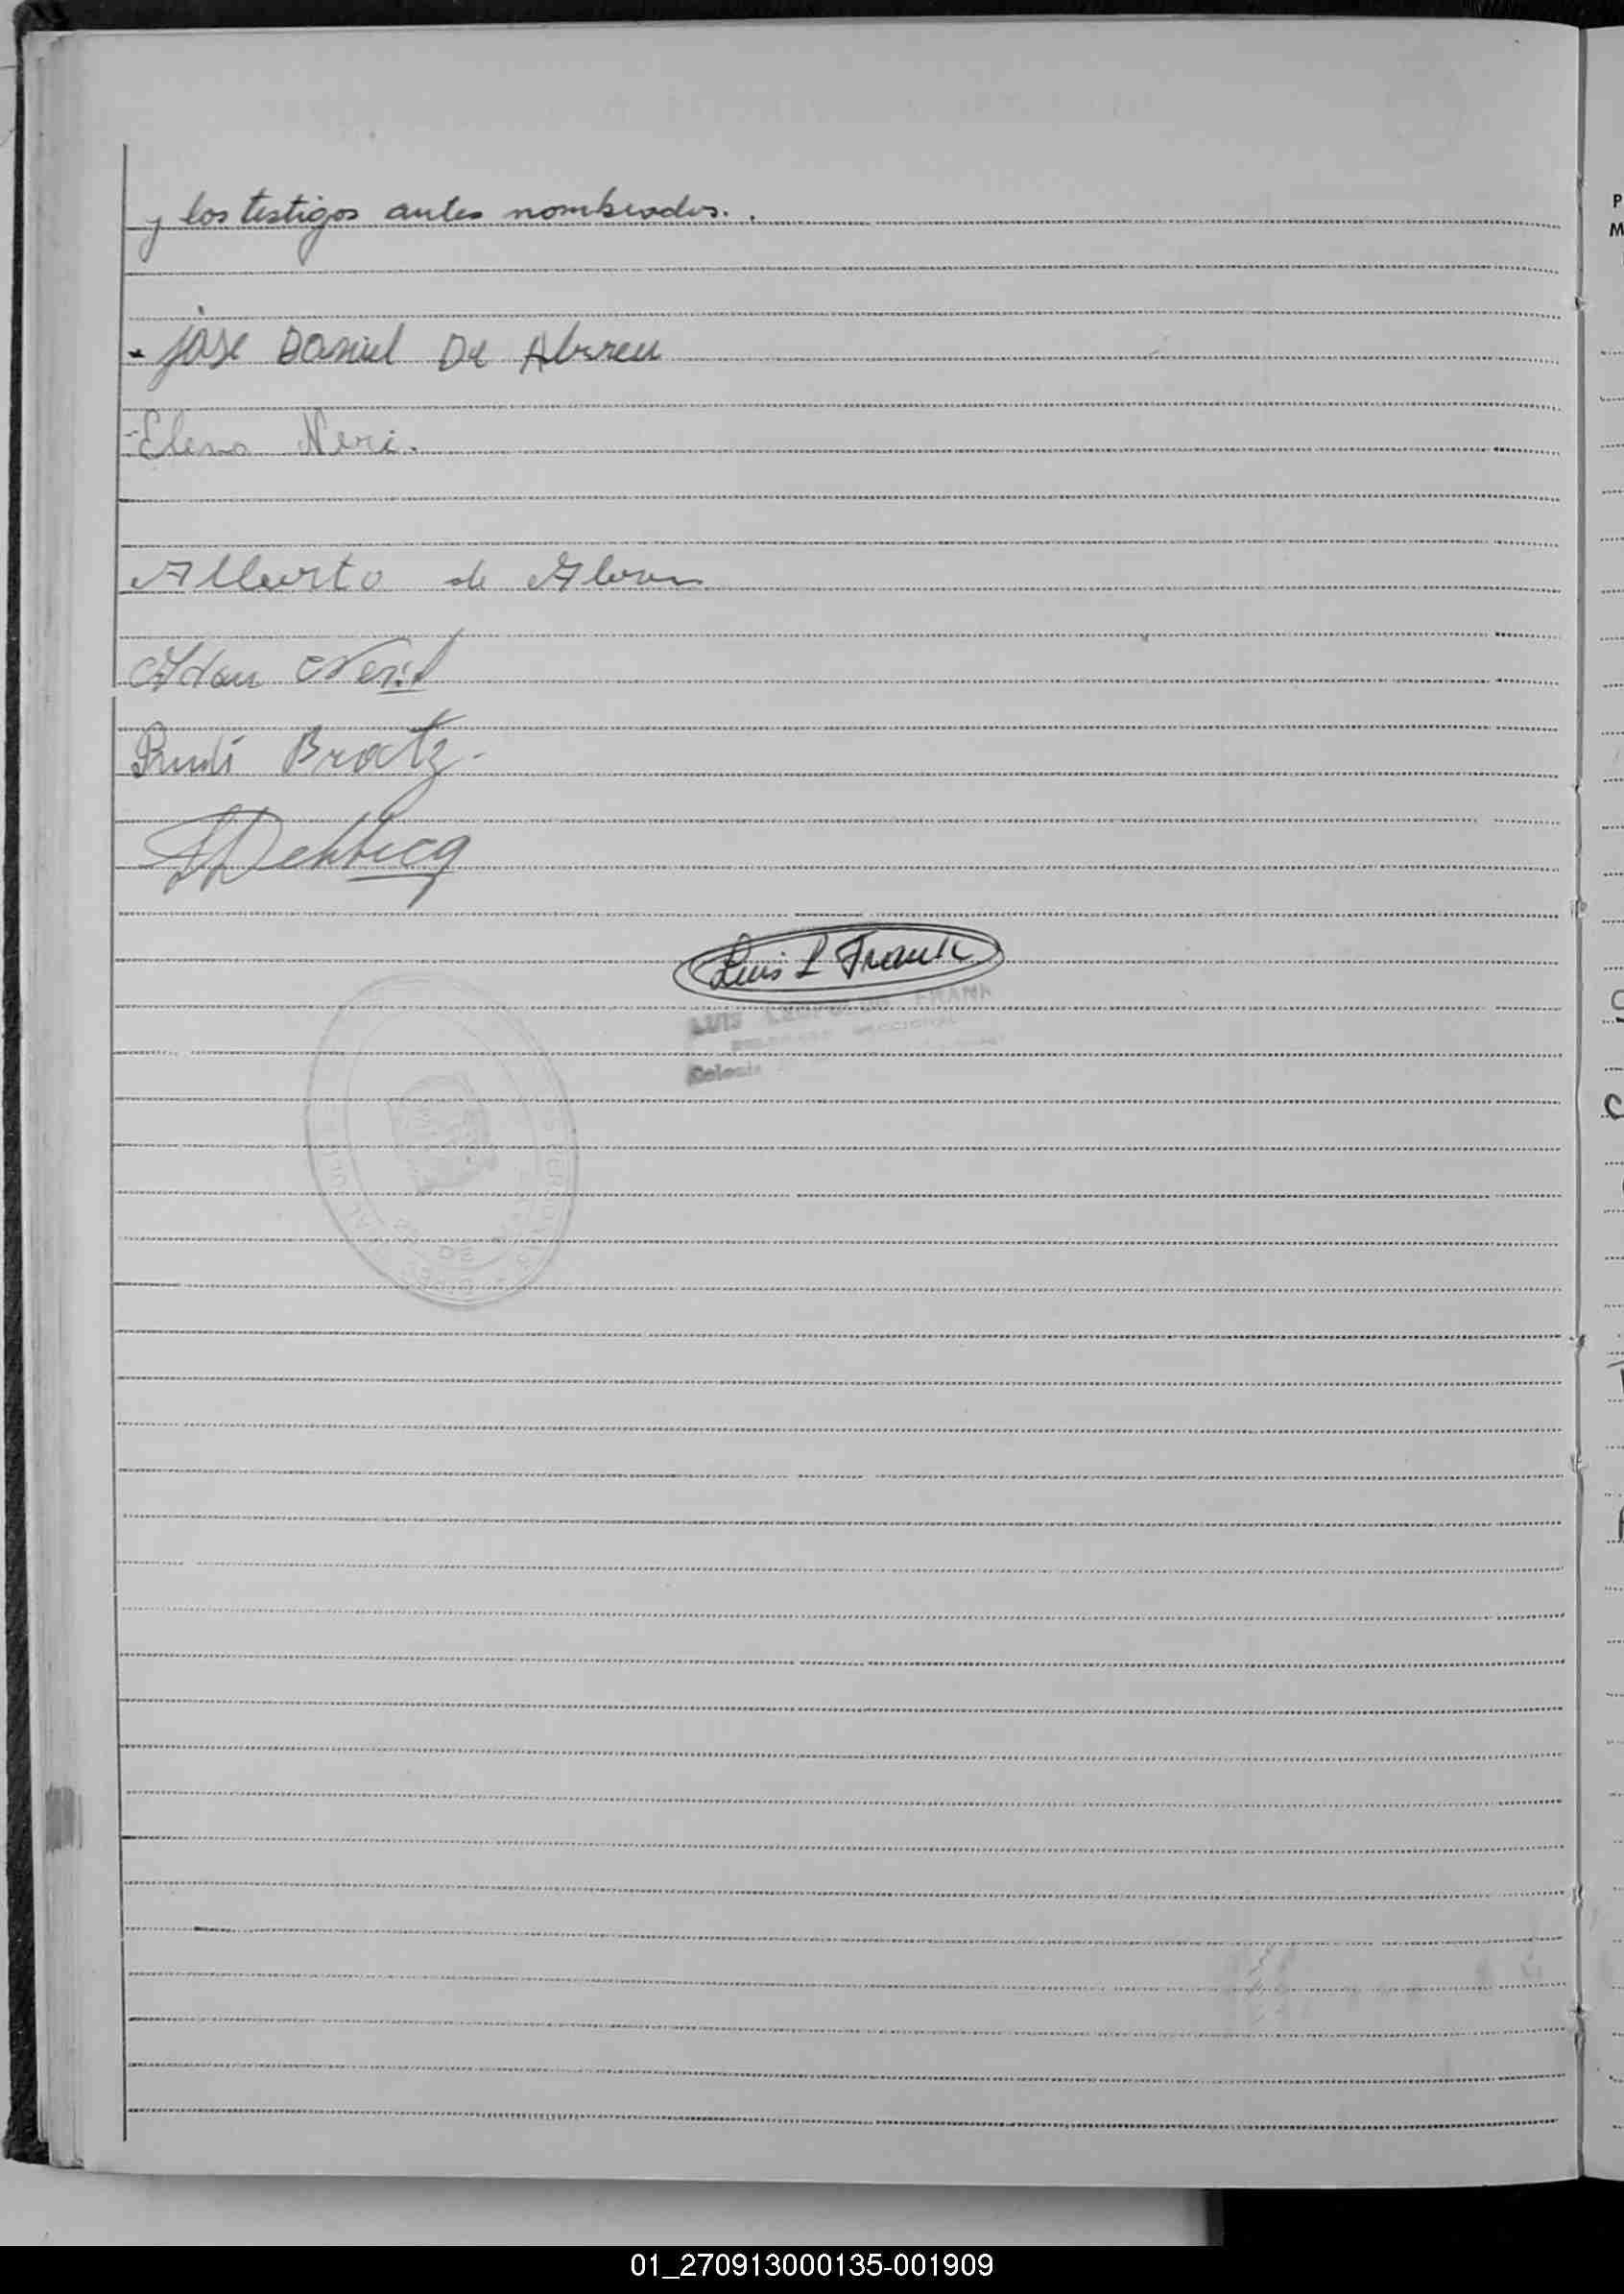 y los testigos antes nombrados.
Jose Daniel De Abreu
Elena Neri.
Alberto de
Adan Neri
Rudi Bratz
Luis L Frank
LUIS LEOPOLDO FRANK
SECCIONAL
Colonia
DE
01_270913000135-001909